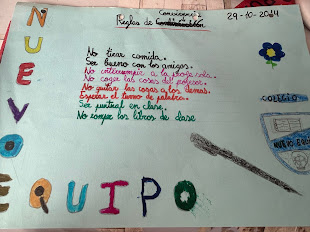 Convivencia
Reglas de
29-10-2014
NUEVO
EQUIPO
No tirar comida.
Ser bueno con los amigos.
No interrumpir a la profesora.
No coger las cosas del profesor.
No quitar las cosas a los demás.
Esperar el turno de palabra.
Ser puntual en clase.
No romper los libros de clase
COLEGIO